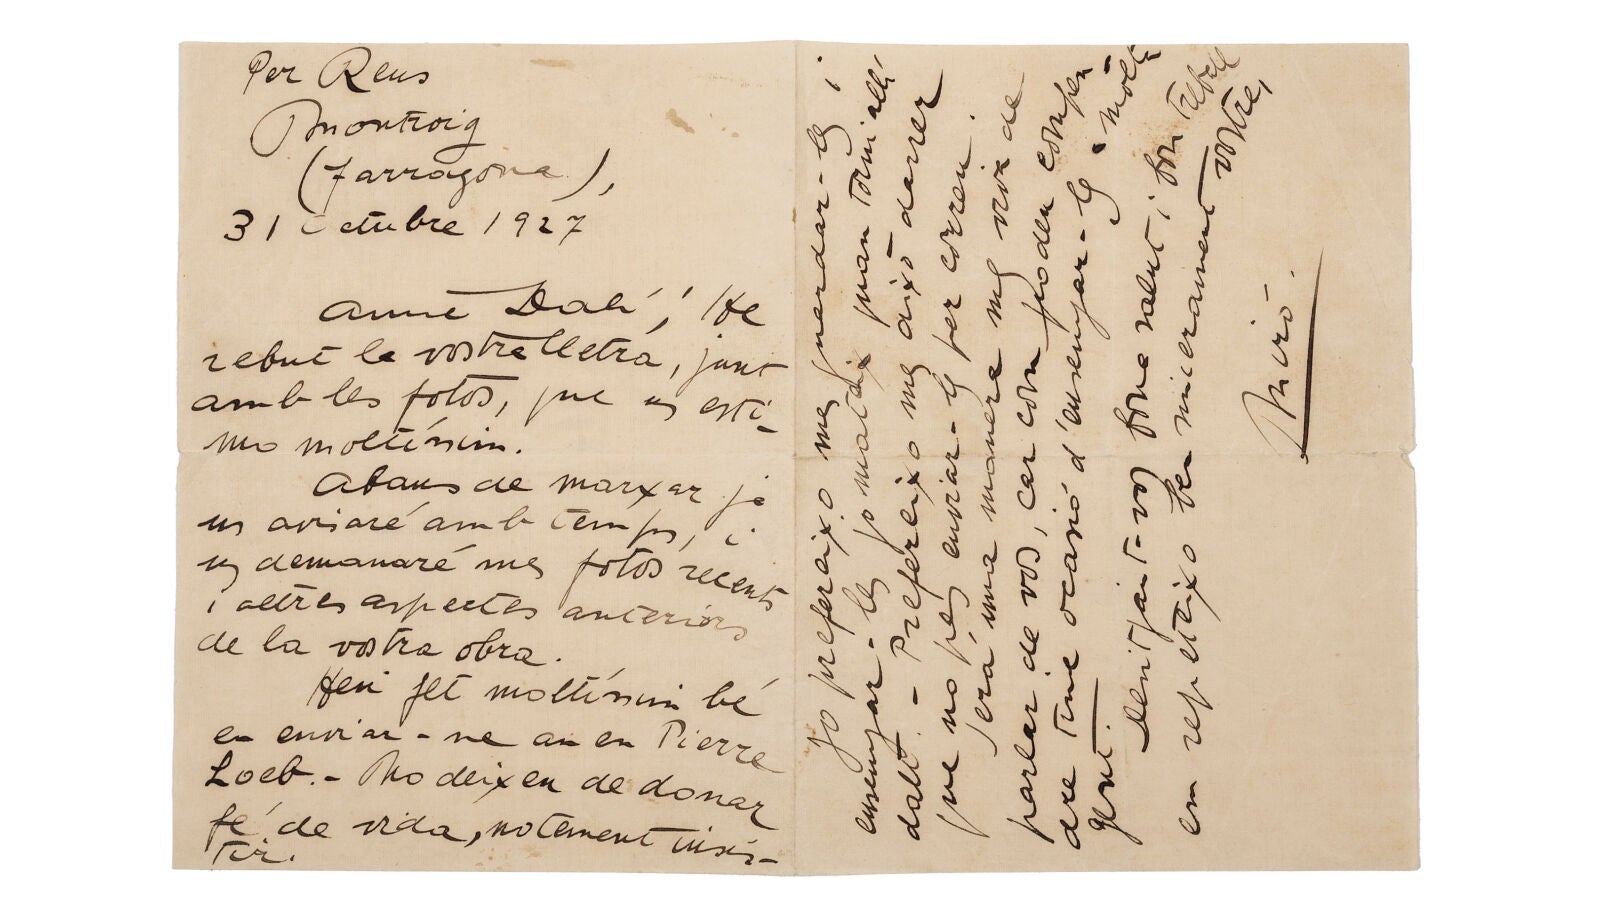 Per Reus
Montroig
(Tarragona),
31 Octubre 1927
Amic Dalí, ! He
rebut la vostra lletra, junt
amb les fotos, que us esti-
mo moltíssim.
Abans de marxar ja
us avisaré amb temps, i
us demanaré mes fotos recents
i altres aspectes anteriors
de la vostra obra.
Heu fet moltíssim bé
en enviar-ne an en Pierre
Loeb.- No deixeu de donar
fé de vida, notement insis-
tir.
Jo prefereixo mes guardar-les i
ensenyar-les jo mateix quan torni allí
dalt.- Prefereixo mes aixó darrer
que no pas enviar-les per correu.
Será una manera mes viva de
parlar de vos, car com podeu compen-
dre tinc ocasió d'ensenyar-les a molta
gent.
Desitjant-vos bona salut i bon treball
em repeteixo ben sincerament vostre,
Miró.